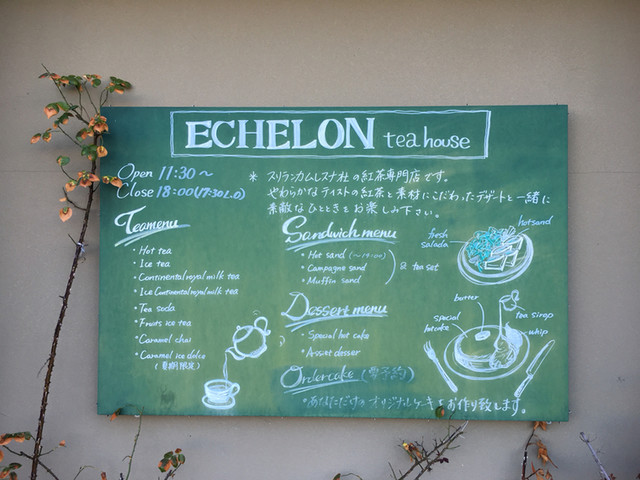 ECHELON tea house
Open 11:30～
Close 18:00(17:30L.O)
* スリランカムレスナ社の紅茶専門店です。
やわらかなテイストの紅茶と素材にこだわったデザートと一緒に
素敵なひとときをお楽しみ下さい。
Teamenu
・Hot tea
・Ice tea
・Continental royal milk tea
・Ice Continental royal milk tea
・Tea soda
・Fruits ice tea
・Caramel chai
・Caramel ice dolce
(夏期限定)
Sandwich menu
・Hot sand (～14:00)
・Campagne sand
・Muffin sand
& tea set
Dessert menu
・Special hot cake
・Assort desser
Ordercake (要予約)
・あなただけのオリジナルケーキをお作り致します。
fresh
salada
hotsand
butter
tea sirop
special
hotcake
whip